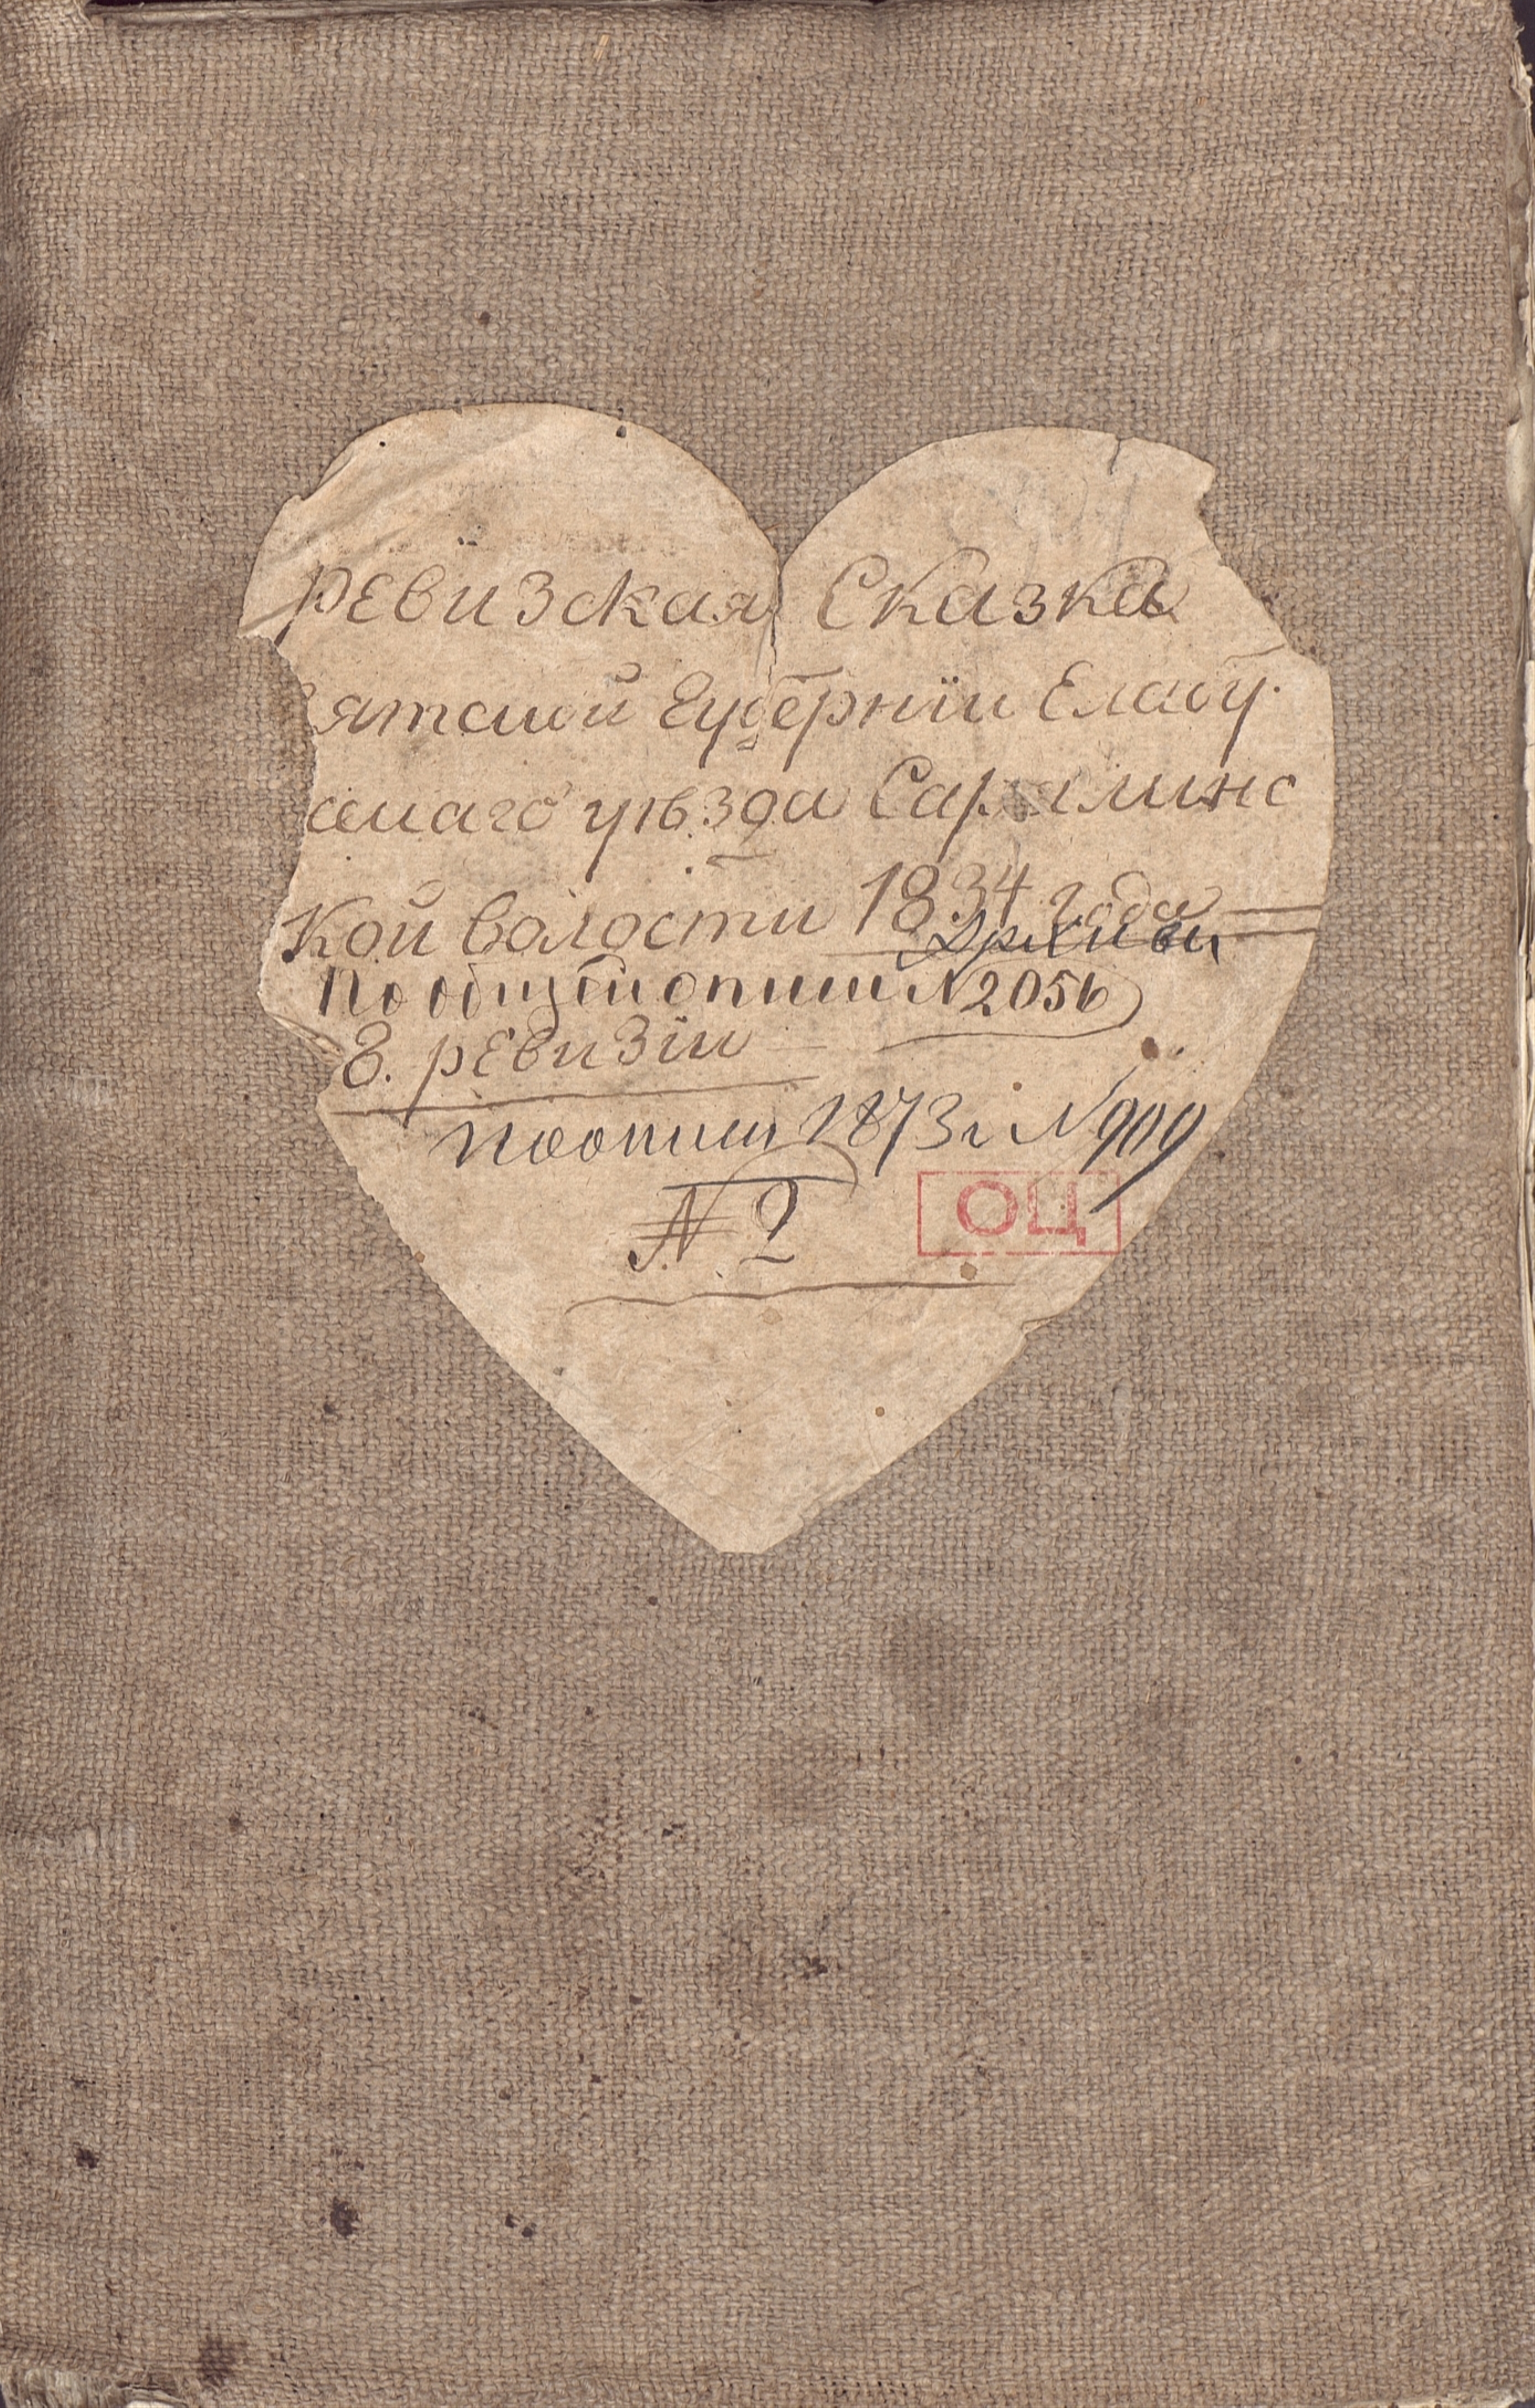 Ревизская Сказка
Вятской Губернїи Елабу
скаго уѣзда Сар линс
кой волости 1834 года
Архивы
По общей описи № 2056
8. ревизїи
по описи 1873 г № 909
№ 2
ОЦ